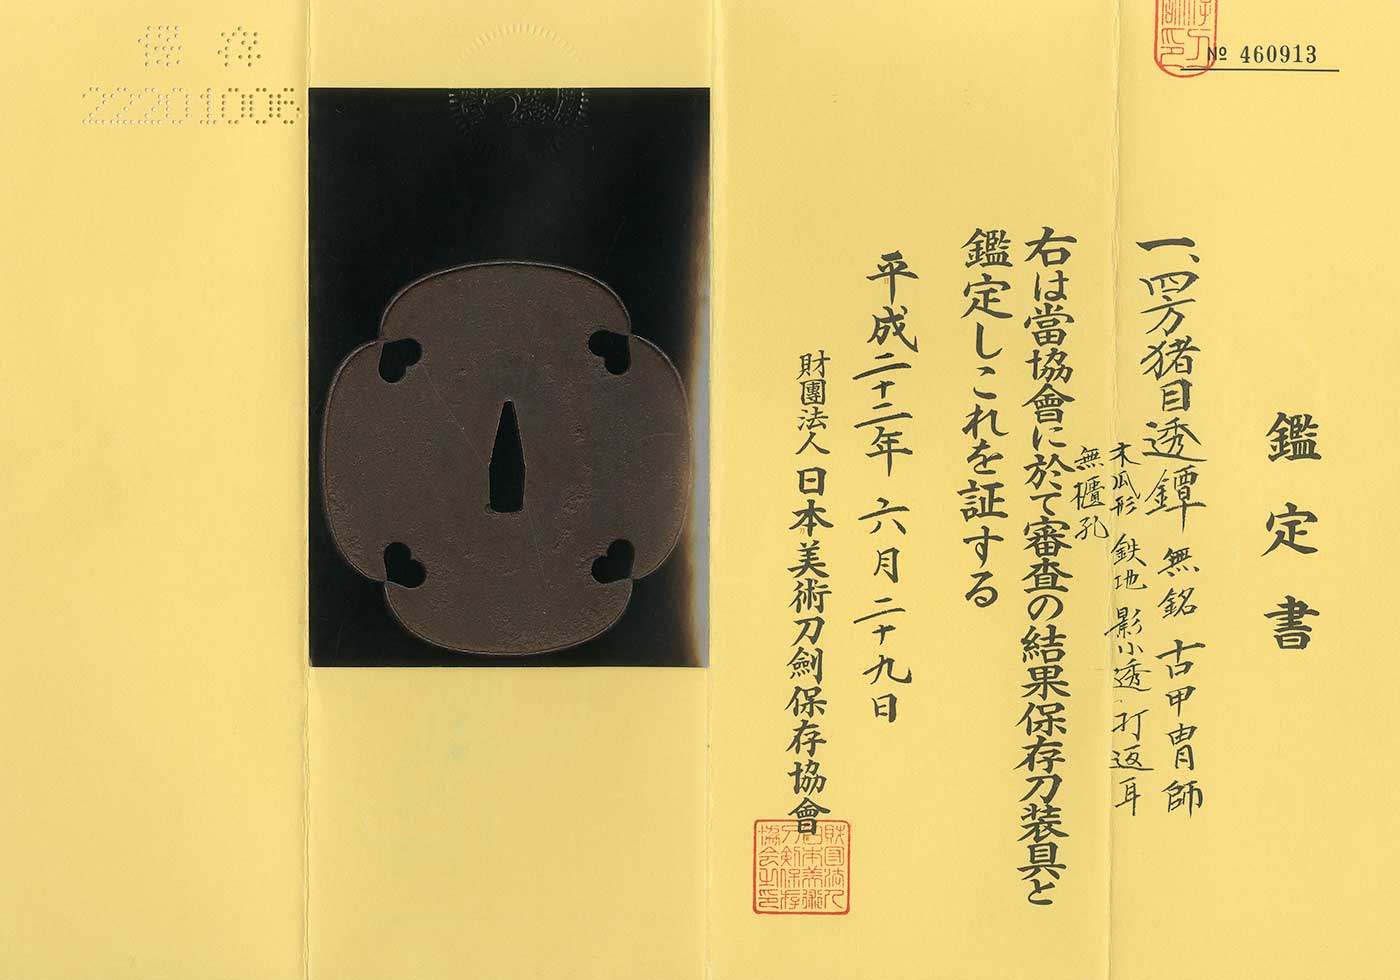 № 460913
鑑定書
一、四方猪目透鐔 無銘 古甲冑師
木瓜形 鉄地 影小透 打返耳
無櫃孔
右は當協會に於て審査の結果保存刀装具と
鑑定しこれを証する
平成二十二年 六月 二十九日
財團法人 日本美術刀劍保存協會
財団法人日本美術刀剣保存協会之印
保存
22201006